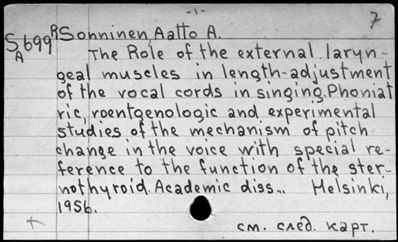 -1-
7
S 699 R Sonninen, Aatto A.
A The Role of the external laryn-
geal muscles in length-adjustment
of the vocal cords in singing. Phoniat
ric, roentgenologic and experimental
studies of the mechanism of pitch
change in the voice with special re-
ference to the function of the ster-
nothyroid. Academic diss... Helsinki,
1956.
см. след. карт.